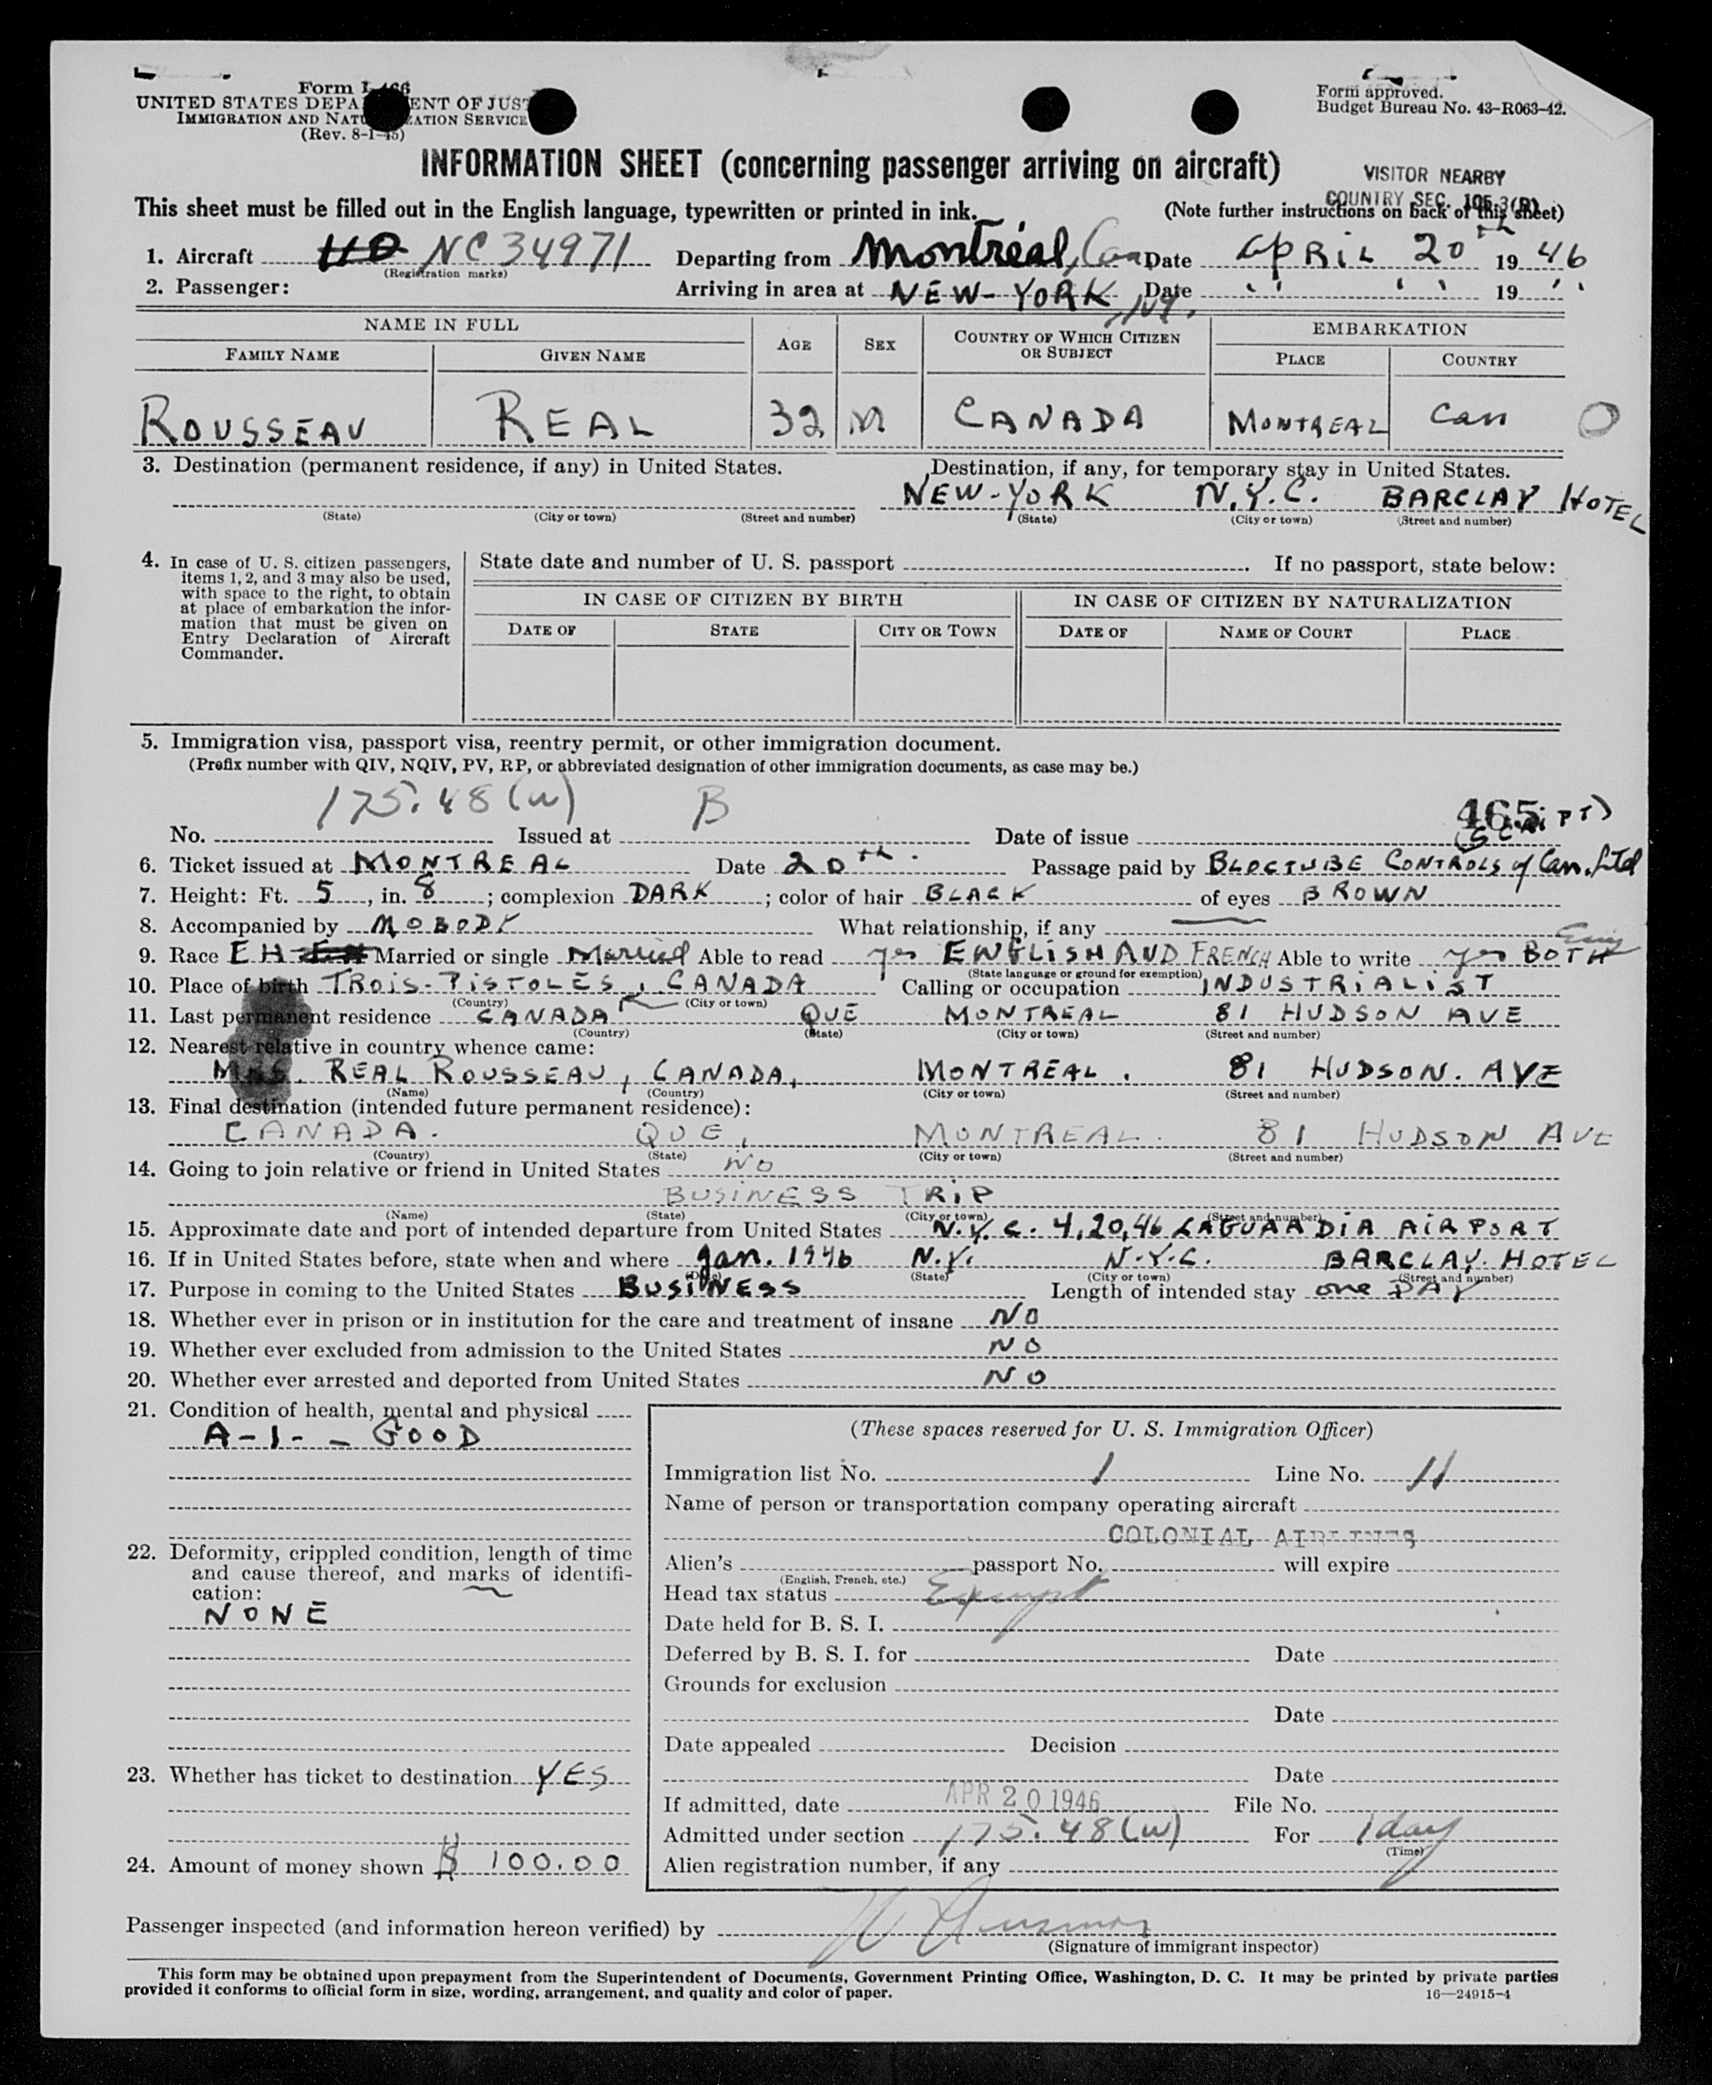 Form I-466
UNITED STATES DEPARTMENT OF JUSTICE
IMMIGRATION AND NATURALIZATION SERVICE
(Rev. 8-1-45)
Form approved.
Budget Bureau No. 43-R063-42.
INFORMATION SHEET (concerning passenger arriving on aircraft)
VISITOR NEARBY
COUNTRY SEC.
This sheet must be filled out in the English language, typewritten or printed in ink.
(Note further instructions on back of this sheet)
1. Aircraft NC 34971 Departing from Montréal, Can Date April 20th 1946
(Registration marks)
2. Passenger: Arriving in area at NEW-YORK, NY. Date " " 19 "
NAME IN FULL AGE SEX COUNTRY OF WHICH CITIZEN OR SUBJECT EMBARKATION
FAMILY NAME GIVEN NAME PLACE COUNTRY
ROUSSEAU REAL 32 M CANADA MONTREAL Can
3. Destination (permanent residence, if any) in United States. Destination, if any, for temporary stay in United States.
NEW-YORK N.Y.C. BARCLAY HOTEL
(State) (City or town) (Street and number) (State) (City or town) (Street and number)
4. In case of U. S. citizen passengers,
items 1, 2, and 3 may also be used,
with space to the right, to obtain
at place of embarkation the infor-
mation that must be given on
Entry Declaration of Aircraft
Commander.
State date and number of U. S. passport . If no passport, state below:
IN CASE OF CITIZEN BY BIRTH IN CASE OF CITIZEN BY NATURALIZATION
DATE OF STATE CITY OR TOWN DATE OF NAME OF COURT PLACE
5. Immigration visa, passport visa, reentry permit, or other immigration document.
(Prefix number with QIV, NQIV, PV, RP, or abbreviated designation of other immigration documents, as case may be.)
175.48(w) B 465
No. Issued at Date of issue
6. Ticket issued at MONTREAL Date 20th. Passage paid by BLOCTUBE CONTROLS of Can. Ltd
7. Height: Ft. 5, in. 8; complexion DARK; color of hair BLACK of eyes BROWN
8. Accompanied by NOBODY What relationship, if any
9. Race Married or single Married Able to read yes ENGLISH AND FRENCH Able to write yes BOTH
(State language or ground for exemption)
10. Place of birth TROIS-PISTOLES, CANADA Calling or occupation INDUSTRIALIST
(Country) (City or town)
11. Last permanent residence CANADA QUE MONTREAL 81 HUDSON AVE
(Country) (State) (City or town) (Street and number)
12. Nearest relative in country whence came:
MRS. REAL ROUSSEAU, CANADA, MONTREAL. 81 HUDSON. AVE
(Name) (Country) (City or town) (Street and number)
13. Final destination (intended future permanent residence):
CANADA. QUE, MONTREAL. 81 HUDSON AVE
(Country) (State) (City or town) (Street and number)
14. Going to join relative or friend in United States NO
BUSINESS TRIP
(Name) (State) (City or town) (Street and number)
15. Approximate date and port of intended departure from United States N.Y.C. 4,20,46 LAGUARDIA AIRPORT
16. If in United States before, state when and where Jan. 1946 N.Y. N.Y.C. BARCLAY HOTEL
(Date) (State) (City or town) (Street and number)
17. Purpose in coming to the United States BUSINESS Length of intended stay one DAY
18. Whether ever in prison or in institution for the care and treatment of insane NO
19. Whether ever excluded from admission to the United States NO
20. Whether ever arrested and deported from United States NO
21. Condition of health, mental and physical
A-1-- GOOD
22. Deformity, crippled condition, length of time
and cause thereof, and marks of identifi-
cation:
NONE
23. Whether has ticket to destination YES
24. Amount of money shown $ 100.00
(These spaces reserved for U. S. Immigration Officer)
Immigration list No. 1 Line No. 11
Name of person or transportation company operating aircraft
COLONIAL AIRLINES
Alien's passport No. will expire
(English, French, etc.)
Head tax status Exempt
Date held for B. S. I.
Deferred by B. S. I. for Date
Grounds for exclusion
Date
Date appealed Decision
Date
If admitted, date APR 20 1946 File No.
Admitted under section 175.48(w) For 1 day
(Time)
Alien registration number, if any
Passenger inspected (and information hereon verified) by
(Signature of immigrant inspector)
This form may be obtained upon prepayment from the Superintendent of Documents, Government Printing Office, Washington, D. C. It may be printed by private parties
provided it conforms to official form in size, wording, arrangement, and quality and color of paper.
16—24915-4